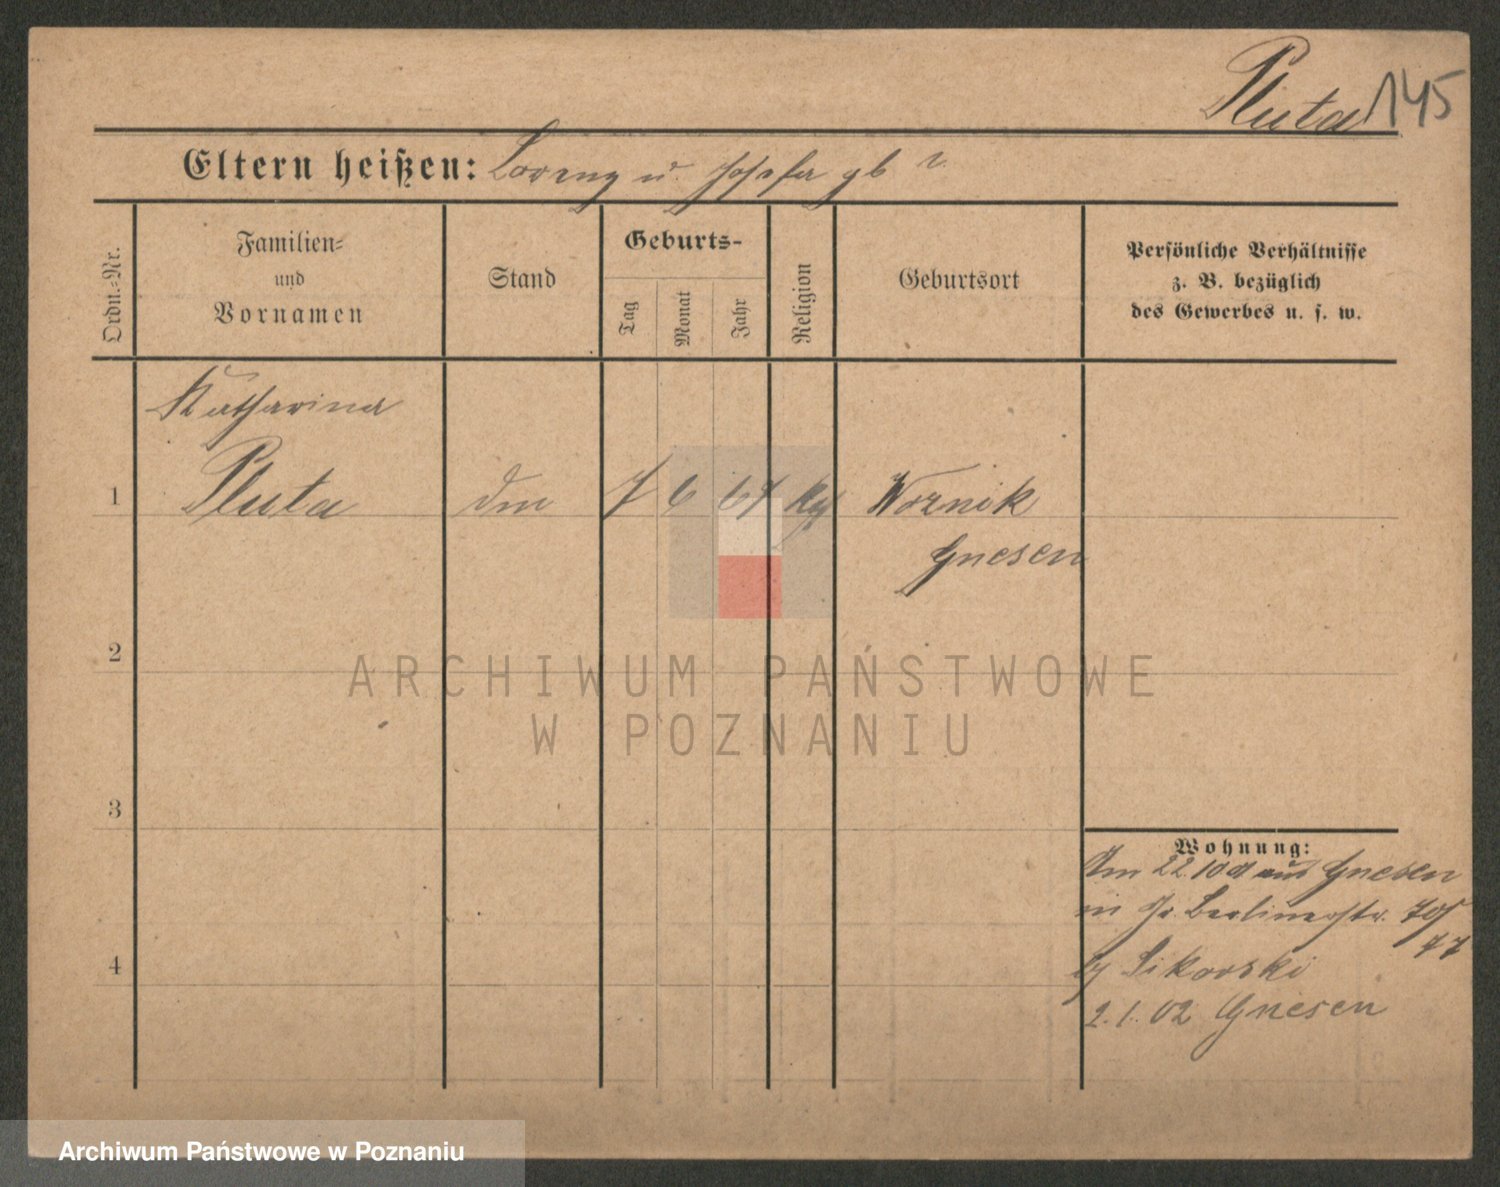 Pluta 145
Eltern heißen: Lorenz u. Josefa gb
Ordn.-Nr.
Familien-
und
Vornamen
Stand
Geburts-
Tag
Monat
Jahr
Religion
Geburtsort
Persönliche Verhältnisse
z. B. bezüglich
des Gewerbes u. s. w.
Katharina
1 Pluta 7 6 Woznik
Gnesen
2
3
4
Wohnung:
Am 22 10 01 aus Gnesen
in Gr. Berlinerstr.
by Sikorski
2. 1. 02 Gnesen
ARCHIWUM PAŃSTWOWE
W POZNANIU
Archiwum Państwowe w Poznaniu